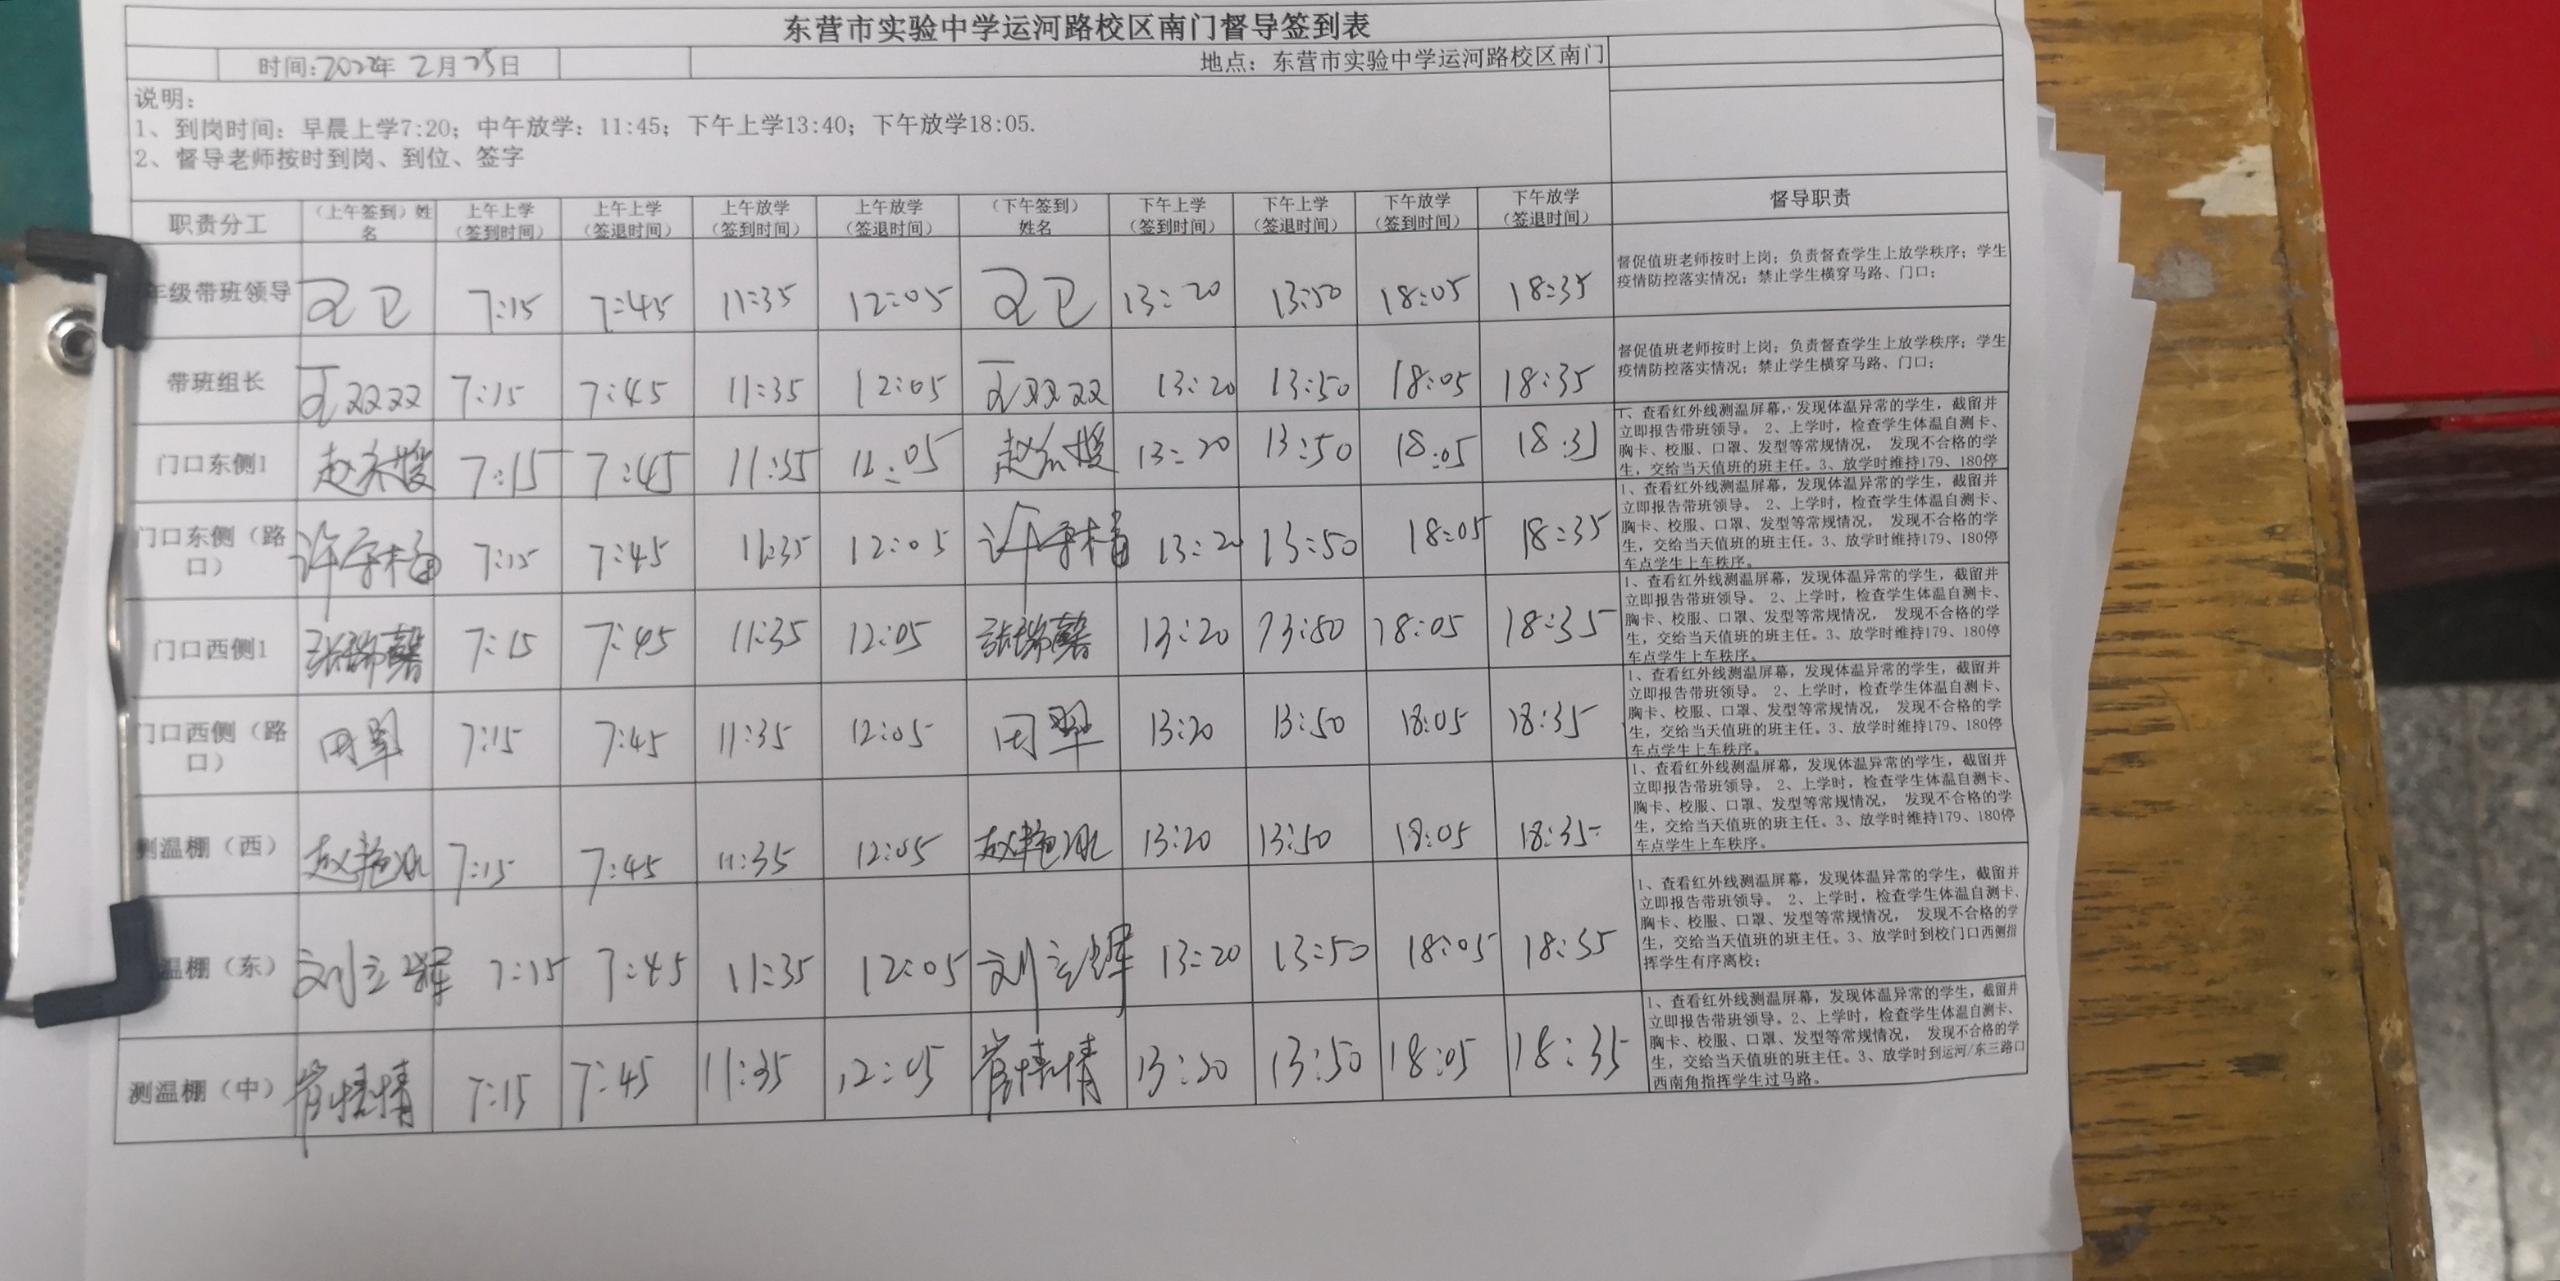 东营市实验中学运河路校区南门督导签到表
时间:2022年 2月25日 地点：东营市实验中学运河路校区南门
说明：
1、到岗时间：早晨上学7:20；中午放学：11:45；下午上学13:40；下午放学18:05.
2、督导老师按时到岗、到位、签字
职责分工 （上午签到）姓名 上午上学（签到时间） 上午上学（签退时间） 上午放学（签到时间） 上午放学（签退时间） （下午签到）姓名 下午上学（签到时间） 下午上学（签退时间） 下午放学（签到时间） 下午放学（签退时间） 督导职责
年级带班领导 7:15 7:45 11:35 12:05 13:20 13:50 18:05 18:35
督促值班老师按时上岗；负责督查学生上放学秩序；学生
疫情防控落实情况；禁止学生横穿马路、门口；
带班组长 7:15 7:45 11:35 12:05 13:20 13:50 18:05 18:35
督促值班老师按时上岗；负责督查学生上放学秩序；学生
疫情防控落实情况；禁止学生横穿马路、门口；
门口东侧1 7:15 7:45 11:35 12:05 13:20 13:50 18:05
1、查看红外线测温屏幕，发现体温异常的学生，截留并
立即报告带班领导。 2、上学时，检查学生体温自测卡、
胸卡、校服、口罩、发型等常规情况， 发现不合格的学
生，交给当天值班的班主任。3、放学时维持179、180停
门口东侧（路口） 7:15 7:45 11:35 12:05 13:20 13:50 18:05 18:35
1、查看红外线测温屏幕，发现体温异常的学生，截留并
立即报告带班领导。 2、上学时，检查学生体温自测卡、
胸卡、校服、口罩、发型等常规情况， 发现不合格的学
生，交给当天值班的班主任。3、放学时维持179、180停
车点学生上车秩序。
门口西侧1 张瑞馨 7:15 7:45 11:35 12:05 张瑞馨 13:20 13:50 18:05 18:35
1、查看红外线测温屏幕，发现体温异常的学生，截留并
立即报告带班领导。 2、上学时，检查学生体温自测卡、
胸卡、校服、口罩、发型等常规情况， 发现不合格的学
生，交给当天值班的班主任。3、放学时维持179、180停
车点学生上车秩序。
门口西侧（路口） 田翠 7:15 7:45 11:35 12:05 田翠 13:20 13:50 18:05 18:35
1、查看红外线测温屏幕，发现体温异常的学生，截留并
立即报告带班领导。 2、上学时，检查学生体温自测卡、
胸卡、校服、口罩、发型等常规情况， 发现不合格的学
生，交给当天值班的班主任。3、放学时维持179、180停
车点学生上车秩序。
测温棚（西） 赵艳冰 7:15 7:45 11:35 12:05 赵艳冰 13:20 13:50 18:05 18:35
1、查看红外线测温屏幕，发现体温异常的学生，截留并
立即报告带班领导。 2、上学时，检查学生体温自测卡、
胸卡、校服、口罩、发型等常规情况， 发现不合格的学
生，交给当天值班的班主任。3、放学时维持179、180停
车点学生上车秩序。
温棚（东） 刘立辉 7:15 7:45 11:35 12:05 刘立辉 13:20 13:50 18:05 18:35
1、查看红外线测温屏幕，发现体温异常的学生，截留并
立即报告带班领导。 2、上学时，检查学生体温自测卡、
胸卡、校服、口罩、发型等常规情况， 发现不合格的学
生，交给当天值班的班主任。3、放学时到校门口西侧指
挥学生有序离校；
测温棚（中） 7:15 7:45 11:35 12:05 13:20 13:50 18:05 18:35
1、查看红外线测温屏幕，发现体温异常的学生，截留并
立即报告带班领导。2、上学时，检查学生体温自测卡、
胸卡、校服、口罩、发型等常规情况， 发现不合格的学
生，交给当天值班的班主任。3、放学时到运河/东三路口
西南角指挥学生过马路。